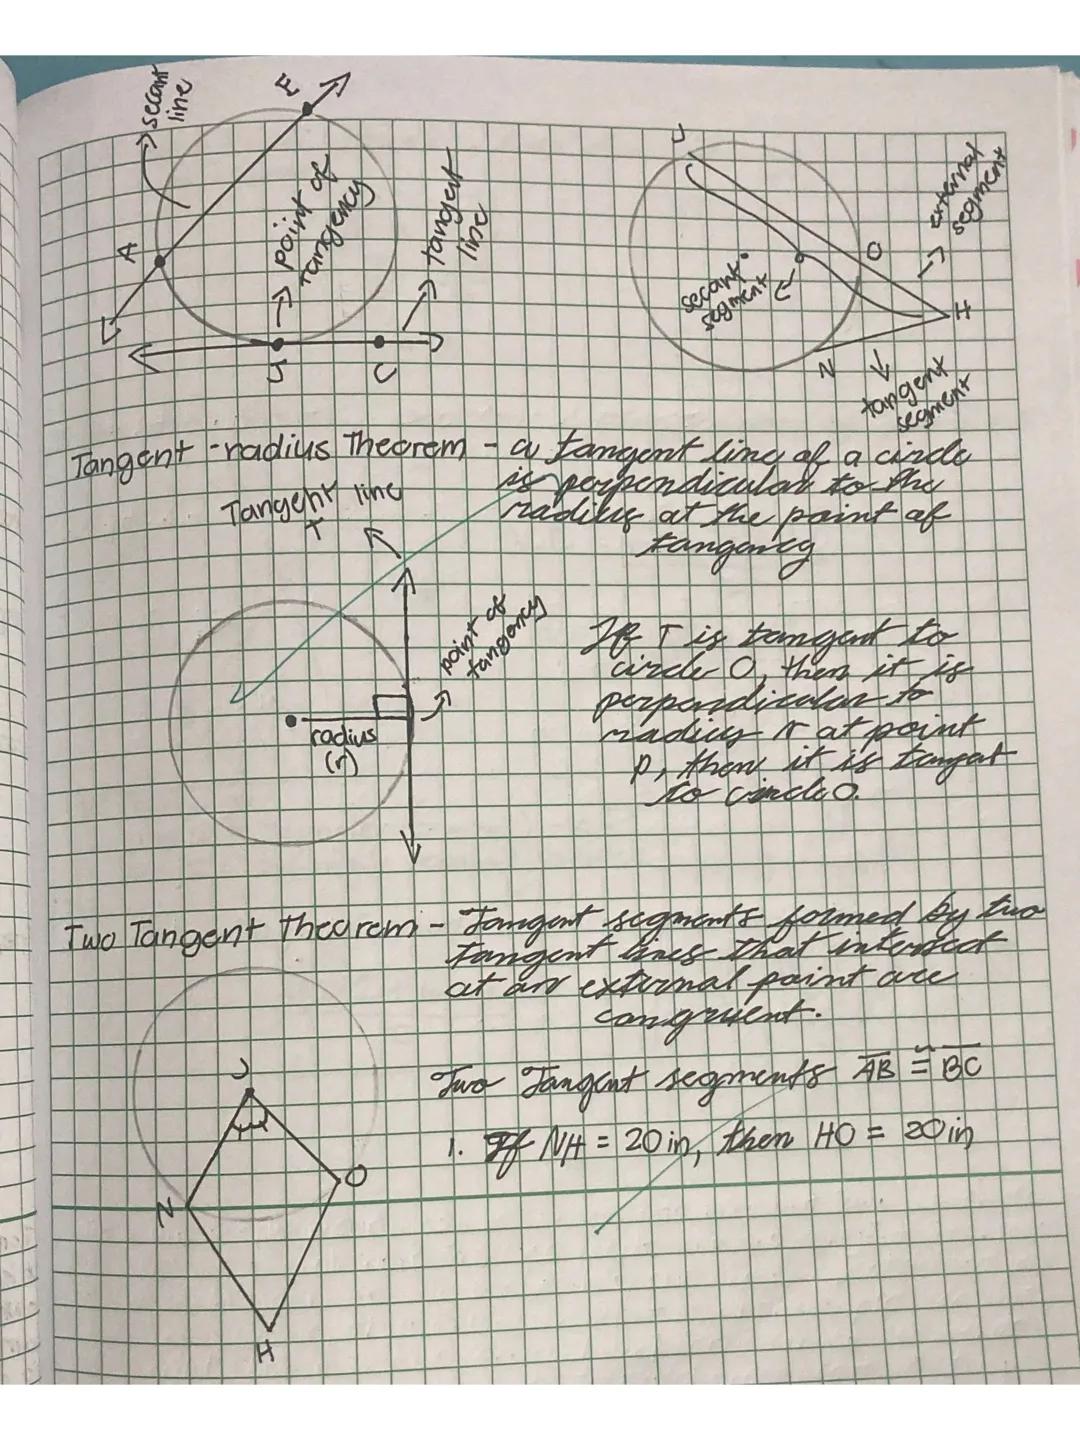 secant
line
E
A
point of
tangency
tangent
line
J
C
J
external
segment
O
secant
segment
H
N
tangent
segment
Tangent-radius Theorem - a tangent line of a circle
is perpendicular to the
radius at the point of
tangency
Tangent line
T
point of
tangency
radius
(r)
If T is tangent to
circle O, then it is
perpendicular to
radius r at point
P, then it is tangat
to circle O.
Two Tangent Theorem - Tangent segments formed by two
tangent lines that intersect
at an external point are
congruent.
J
O
N
H
Two Tangent segments AB ≅ BC
1. If NH = 20in, then HO = 20in